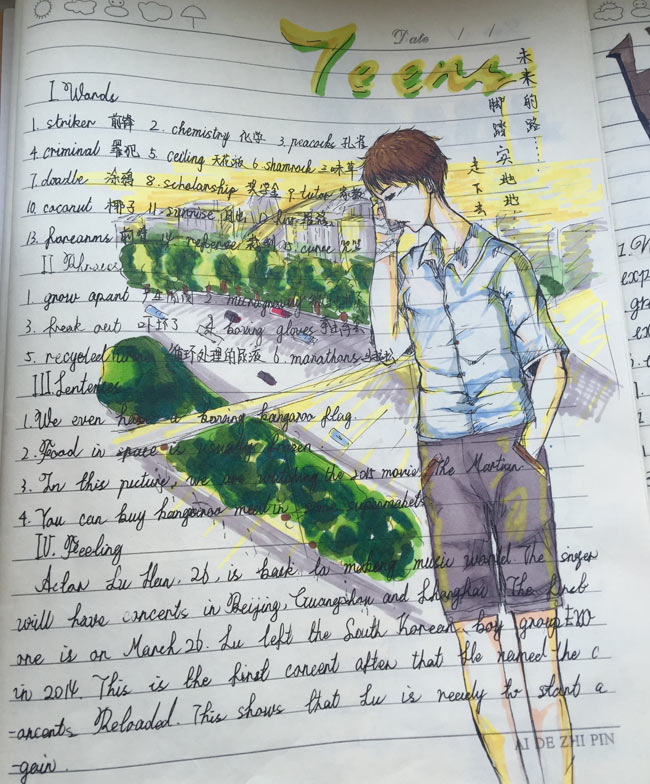 Teens
Date / /
未来的路
脚踏实地地
走下去
I Words
1. striker 前锋 2. chemistry 化学 3. peacocks 孔雀
4. criminal 罪犯 5. ceiling 天花 6. shamrock 三味草
7. doodle 涂鸦 8. scholarship 奖学金 9. tutor 家教
10. coconut 椰子 11. sunrise 12.
13. forearms 前臂 14. 15.
II Phrases
1. grow apart 2.
3. freak out 吓坏了 4. boxing gloves
5. recycled urine 循环处理的尿液 6. marathons 马拉松
III. Sentences
1. We even have a boxing kangaroo flag.
2. Food in space is usually frozen
3. In this picture, we are watching the 2015 movie The Martian.
4. You can buy kangaroo meat in some supermarkets.
IV. Feeling
Actor Lu Han, 26, is back to making music world. The singer
will have concerts in Beijing, Guangzhou and Shanghai. The first
one is on March 26. Lu left the South Korean boy group EXO
in 2014. This is the first concert after that. He named the c
-oncerts Reloaded. This shows that Lu is ready to start a
-gain.
AI DE ZHI PIN